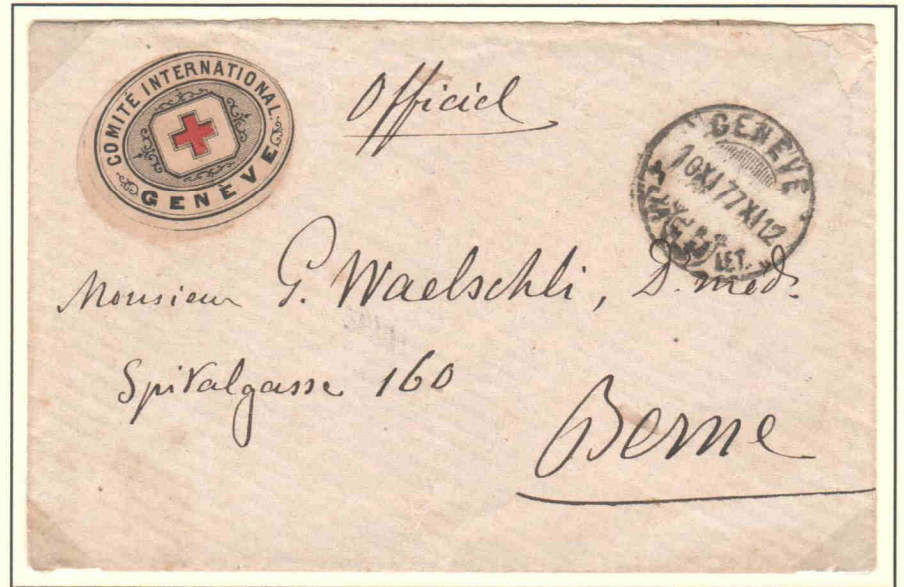 COMITÉ INTERNATIONAL
GENÈVE
Officiel
GENÈVE
10 XI 77 XI 12
LET.
Monsieur G. Waelschli, D. med.
Spitalgasse 160
Berne